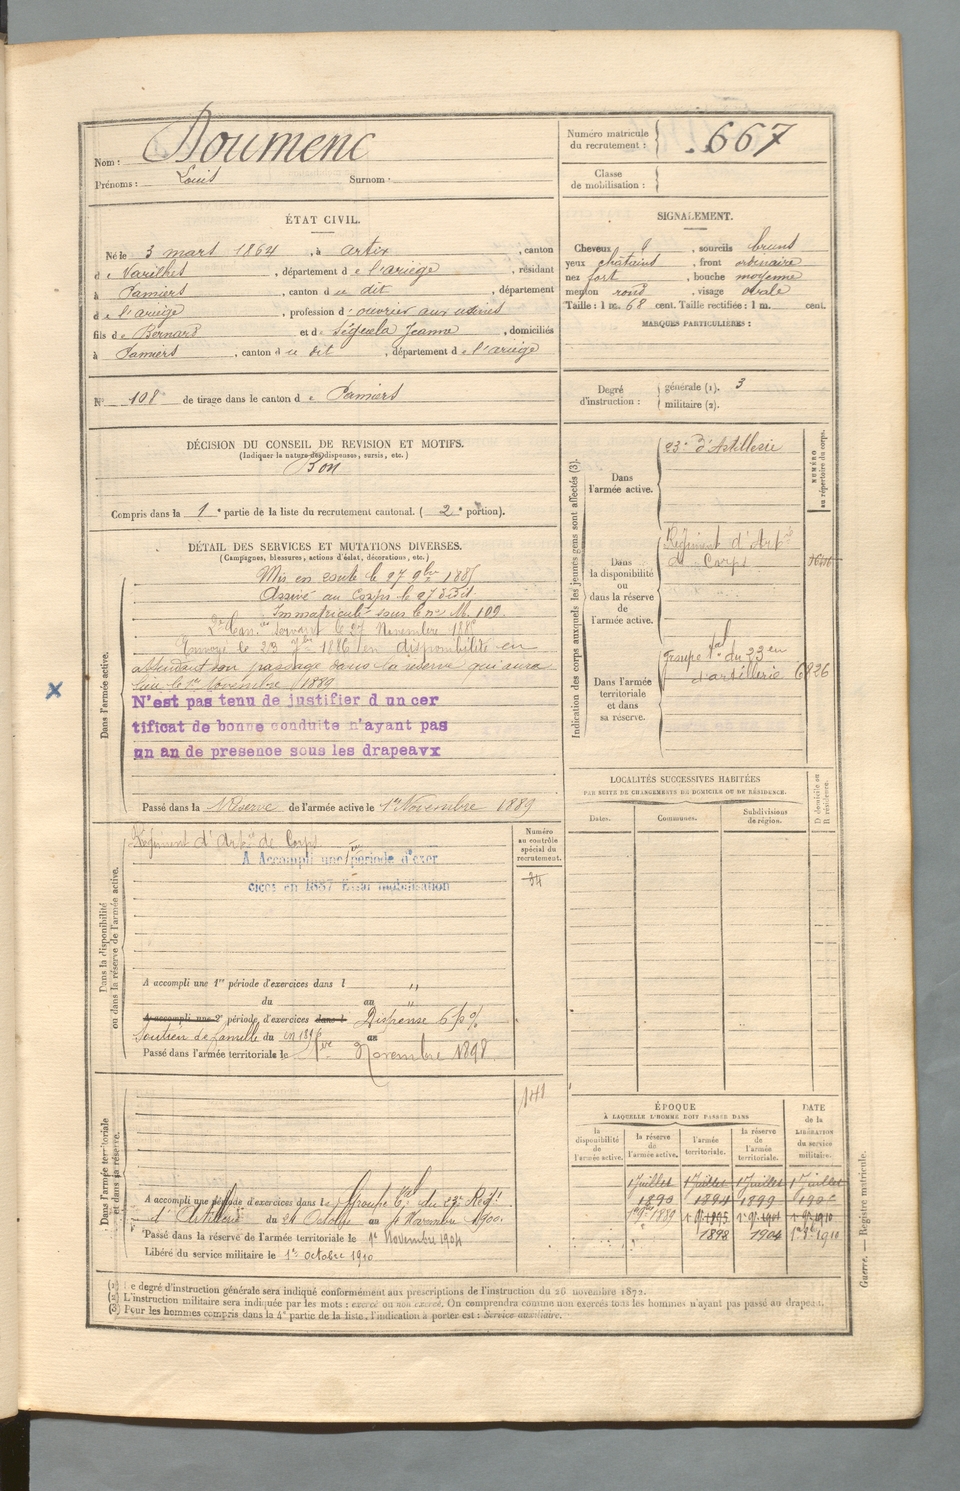 Nom : Doumenc
Prénoms : Louis Surnom :
Numéro matricule du recrutement : 667
Classe de mobilisation :
ÉTAT CIVIL.
Né le 3 mars 1864, à Artix, canton
de Varilhes, département de l'ariège, résidant
à Pamiers, canton du dit, département
de l'ariège, profession d'ouvrier aux usines
fils de Bernard et de Séguela Jeanne, domiciliés
à Pamiers, canton du dit, département de l'ariège
SIGNALEMENT.
Cheveux , sourcils bruns
yeux chatains, front ordinaire
nez fort, bouche moyenne
menton rond, visage ovale
Taille : 1 m. 68 cent. Taille rectifiée : 1 m. cent.
MARQUES PARTICULIÈRES :
N° 108 de tirage dans le canton de Pamiers
Degré d'instruction : générale (1). 3
militaire (2).
DÉCISION DU CONSEIL DE REVISION ET MOTIFS.
(Indiquer la nature des dispenses, sursis, etc.)
Bon
Compris dans la 1e partie de la liste du recrutement cantonal. (2e portion).
DÉTAIL DES SERVICES ET MUTATIONS DIVERSES.
(Campagnes, blessures, actions d'éclat, décorations, etc.)
Dans l'armée active.
Mis en route le 27 9bre 1885
Arrivé au Corps le 27 dud.
Immatriculé sous le no M. 109.
servant le 27 Novembre 1885
Envoyé le 23 9bre 1886 en disponibilité en
attendant son passage dans la réserve qui aura
lieu le 1er Novembre 1889
N'est pas tenu de justifier d un cer
tificat de bonne conduite n'ayant pas
un an de presence sous les drapeavx
Passé dans la Réserve de l'armée active le 1er Novembre 1889
Indication des corps auxquels les jeunes gens sont affectés (3).
NUMÉRO au répertoire du corps.
Dans l'armée active.
23e d'Artillerie
Dans la disponibilité ou dans la réserve de l'armée active.
Régiment d'Arti
de Corps
Dans l'armée territoriale et dans sa réserve.
Groupe tal du 23 en
d'artillerie 6826
LOCALITÉS SUCCESSIVES HABITÉES
PAR SUITE DE CHANGEMENTS DE DOMICILE OU DE RÉSIDENCE.
Dates. Communes. Subdivisions de région. D. domicile ou R. résidence.
Dans la disponibilité ou dans la réserve de l'armée active.
Numéro au contrôle spécial du recrutement.
34
Régiment d'Artie de Corps
A Accompli une 1re période d'exer
cices en 1887 Essai mobilisation
A accompli une 1re période d'exercices dans l "
du au "
A accompli une 2e période, d'exercices dans l Dispense 6 p %
Soutien de famille du en 1896 au
Passé dans l'armée territoriale le 1er Novembre 1898
Dans l'armée territoriale et dans sa réserve.
141
A accompli une période d'exercices dans le Groupe tal du 23e Régt
d'Artillerie du 24 Octobre au 4 Novembre 1900.
Passé dans la réserve de l'armée territoriale le 1er Novembre 1904
Libéré du service militaire le 1er octobre 1910
ÉPOQUE
À LAQUELLE L'HOMME DOIT PASSER DANS
DATE de la LIBÉRATION du service militaire.
la disponibilité de l'armée active. la réserve de l'armée active. l'armée territoriale. la réserve de l'armée territoriale.
1 Juillet 1 Juillet 1 Juillet 1 Juillet
1890 1894 1899
1er 9bre 1889 1er 9. 1895 1er 9. 1901 1910
1898 1904 1er 8bre 1910
(1) Le degré d'instruction générale sera indiqué conformément aux prescriptions de l'instruction du 26 novembre 1872.
(2) L'instruction militaire sera indiquée par les mots : exercé ou non exercé. On comprendra comme non exercés tous les hommes n'ayant pas passé au drapeau.
(3) Pour les hommes compris dans la 4e partie de la liste, l'indication à porter est : Service auxiliaire.
Guerre. — Registre matricule.